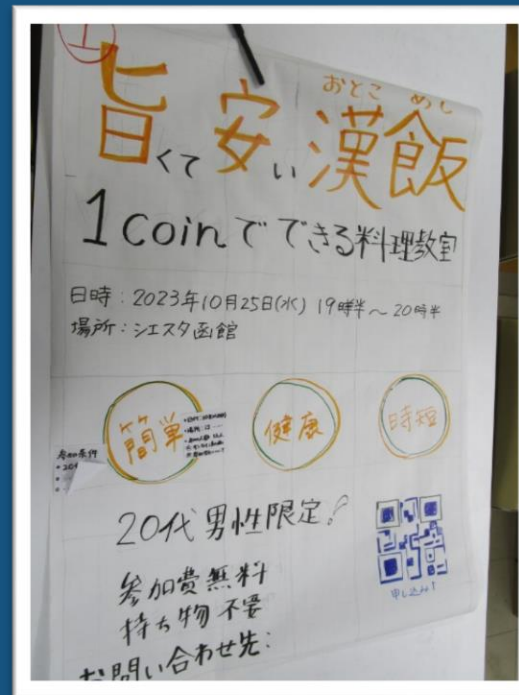 ①
おとこ めし
旨くて 安い 漢飯
1coinで できる料理教室
日時：2023年10月25日(水) 19時半～20時半
場所：シエスタ函館
簡単
健康
時短
参加条件
20代男性限定！
参加費無料
持ち物不要
申し込み！
お問い合わせ先：